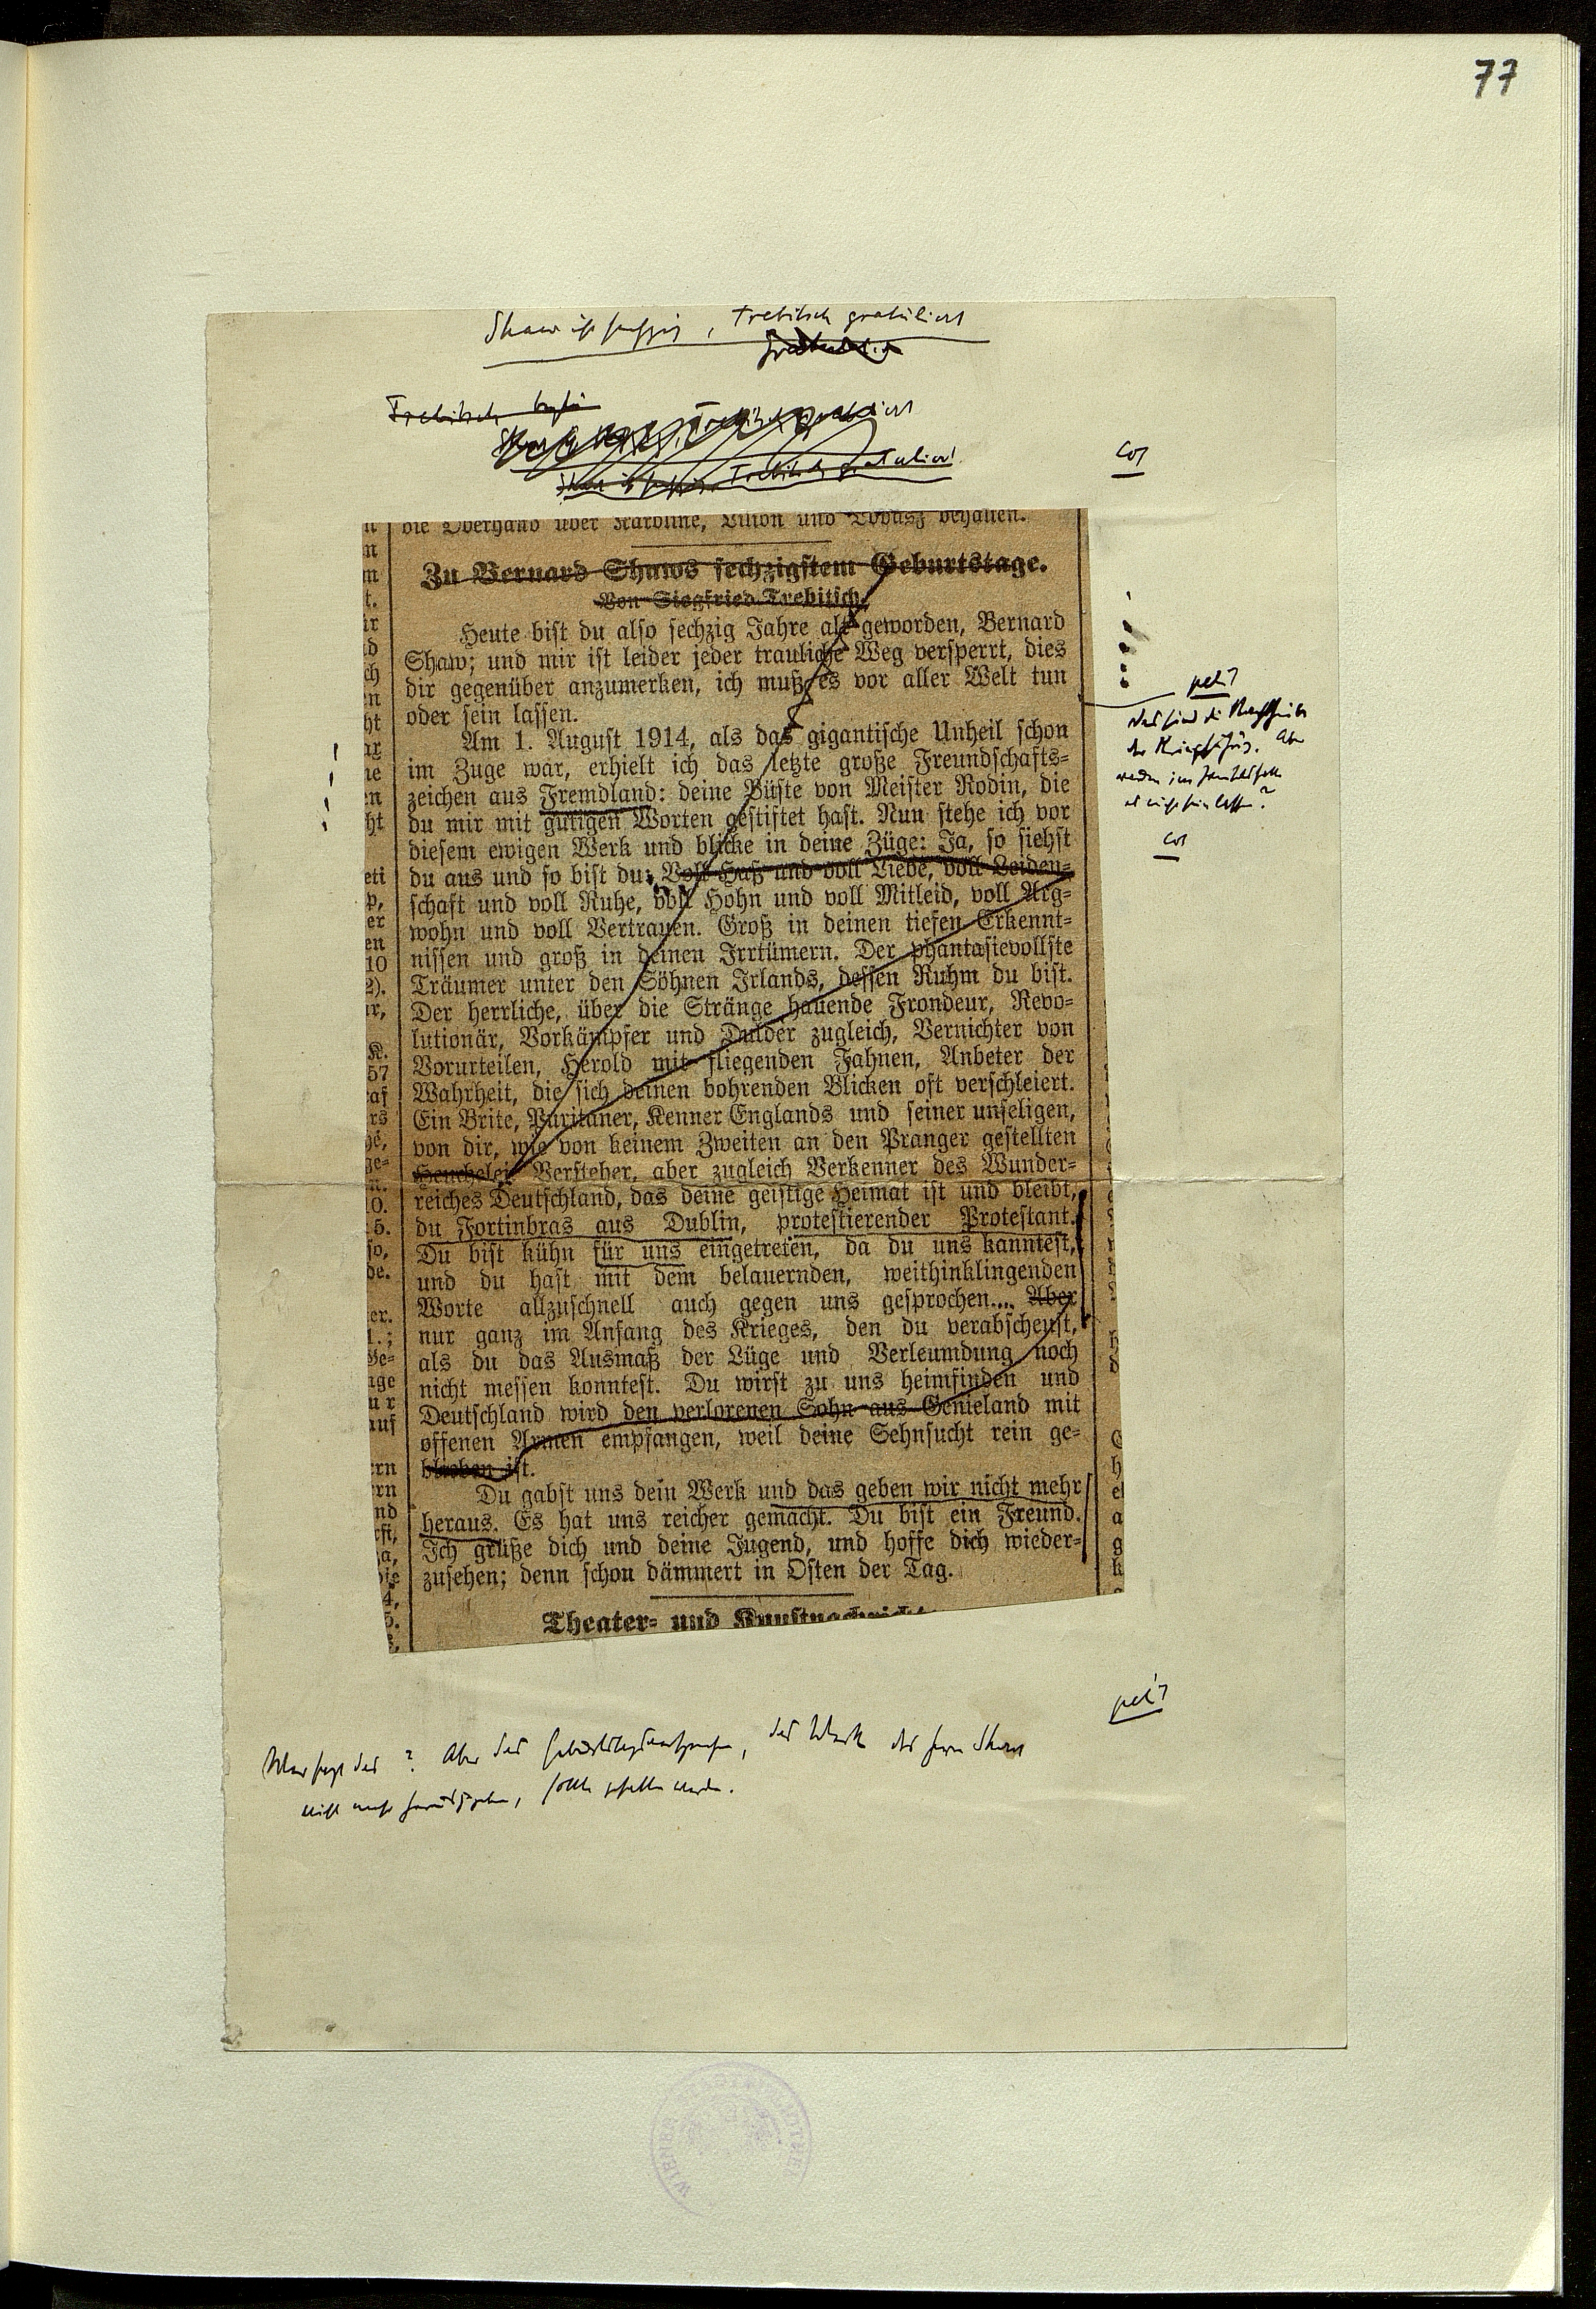 77
Shaw ist sechzig, Trebitsch gratuliert
Trebitsch
Trebitsch gratuliert
Shaw ist sechzig, Trebitsch gratuliert
Cor
die Oberhand über Karoline, Lilion und behalten.
Zu Bernard Shaws sechzigstem Geburtstage.
Von Siegfried Trebitsch.
Heute bist du also sechzig Jahre alt geworden, Bernard
Shaw; und mir ist leider jeder trauliche Weg versperrt, dies
dir gegenüber anzumerken, ich muß es vor aller Welt tun
oder sein lassen.
Am 1. August 1914, als das gigantische Unheil schon
im Zuge war, erhielt ich das letzte große Freundschafts-
zeichen aus Fremdland: deine Büste von Meister Rodin, die
du mir mit gütigen Worten gestiftet hast. Nun stehe ich vor
diesem ewigen Werk und blicke in deine Züge: Ja, so siehst
du aus und so bist du: Voll Haß und voll Liebe, voll Leiden-
schaft und voll Ruhe, voll Hohn und voll Mitleid, voll Arg-
wohn und voll Vertrauen. Groß in deinen tiefen Erkennt-
nissen und groß in deinen Irrtümern. Der phantasievollste
Träumer unter den Söhnen Irlands, dessen Ruhm du bist.
Der herrliche, über die Stränge hauende Frondeur, Revo-
lutionär, Vorkämpfer und Dulder zugleich, Vernichter von
Vorurteilen, Herold mit fliegenden Fahnen, Anbeter der
Wahrheit, die sich deinen bohrenden Blicken oft verschleiert.
Ein Brite, Puritaner, Kenner Englands und seiner unseligen,
von dir, wie von keinem Zweiten an den Pranger gestellten
Heuchelei. Versteher, aber zugleich Verkenner des Wunder-
reiches Deutschland, das deine geistige Heimat ist und bleibt,
du Fortinbras aus Dublin, protestierender Protestant.
Du bist kühn für uns eingetreten, da du uns kanntest,
und du hast mit dem belauernden, weithinklingenden
Worte allzuschnell auch gegen uns gesprochen.... Aber
nur ganz im Anfang des Krieges, den du verabscheust,
als du das Ausmaß der Lüge und Verleumdung noch
nicht messen konntest. Du wirst zu uns heimfinden und
Deutschland wird den verlorenen Sohn aus Genieland mit
offenen Armen empfangen, weil deine Sehnsucht rein ge-
blieben ist.
Du gabst uns dein Werk und das geben wir nicht mehr
heraus. Es hat uns reicher gemacht. Du bist ein Freund.
Ich grüße dich und deine Jugend, und hoffe dich wieder-
zusehen; denn schon dämmert in Osten der Tag.
Theater- und Kunstnachricht
petit
Das sind die
der Kriegführung. Aber
es nicht sein lassen?
Cor
petit
Wer sagt das? Aber das, das Werk des Herrn Shaw
nicht mehr, sollte gehalten werden.
WIENER STADTBIBLIOTHEK